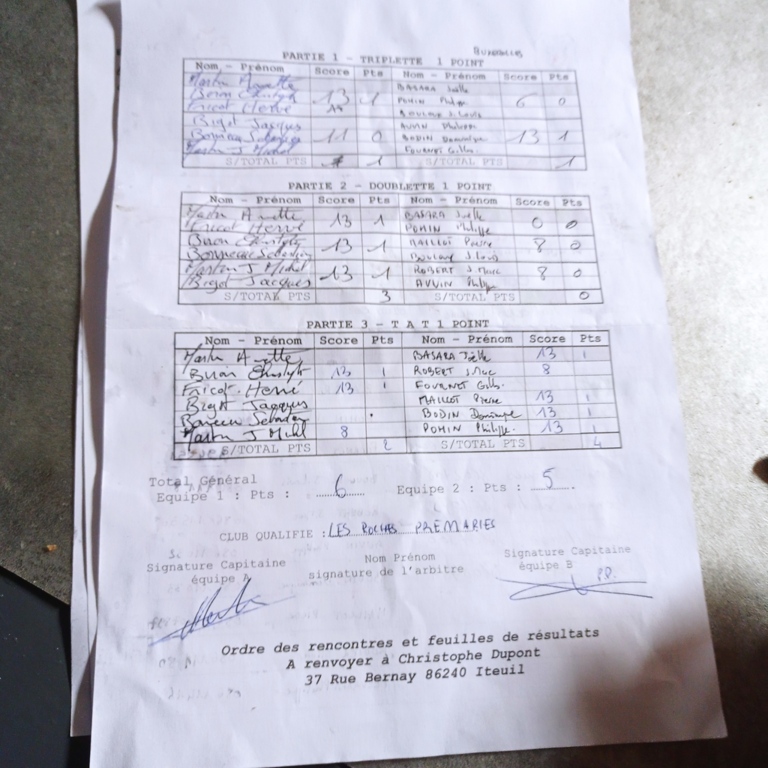 PARTIE 1 - TRIPLETTE 1 POINT
Nom - Prénom Score Pts Nom - Prénom Score Pts
BASARA Joëlle
13 1 POMIN Philippe 6 0
Fricot Hervé BOULAY J. Louis
Bigot Jacques AUVIN Philippe
11 0 BODIN Dominique 13 1
Martin J Michel FOURNET Gilles.
S/TOTAL PTS 1 S/TOTAL PTS 1
PARTIE 2 - DOUBLETTE 1 POINT
Nom - Prénom Score Pts Nom - Prénom Score Pts
Martin A 13 1 BASARA Joëlle 0 0
Fricot Hervé POMIN Philippe
13 1 MAILLOT Pierre 8 0
BOULAY J. Louis
Martin J Michel 13 1 ROBERT J. Marc 8 0
Bigot Jacques AUVIN Philippe
S/TOTAL PTS 3 S/TOTAL PTS 0
PARTIE 3 - T A T 1 POINT
Nom - Prénom Score Pts Nom - Prénom Score Pts
Martin A BASARA Joëlle 13 1
13 1 ROBERT J. Marc 8
Fricot Hervé 13 1 FOURNET Gilles.
Bigot Jacques MAILLOT Pierre 13 1
BODIN Dominique 13 1
Martin J Michel 8 POMIN Philippe 13 1
S/TOTAL PTS 2 S/TOTAL PTS 4
Total Général
Equipe 1 : Pts : 6 Equipe 2 : Pts : 5
CLUB QUALIFIE : LES ROCHES PREMARIES
Signature Capitaine équipe A
Nom Prénom signature de l'arbitre
Signature Capitaine équipe B
Ordre des rencontres et feuilles de résultats
A renvoyer à Christophe Dupont
37 Rue Bernay 86240 Iteuil